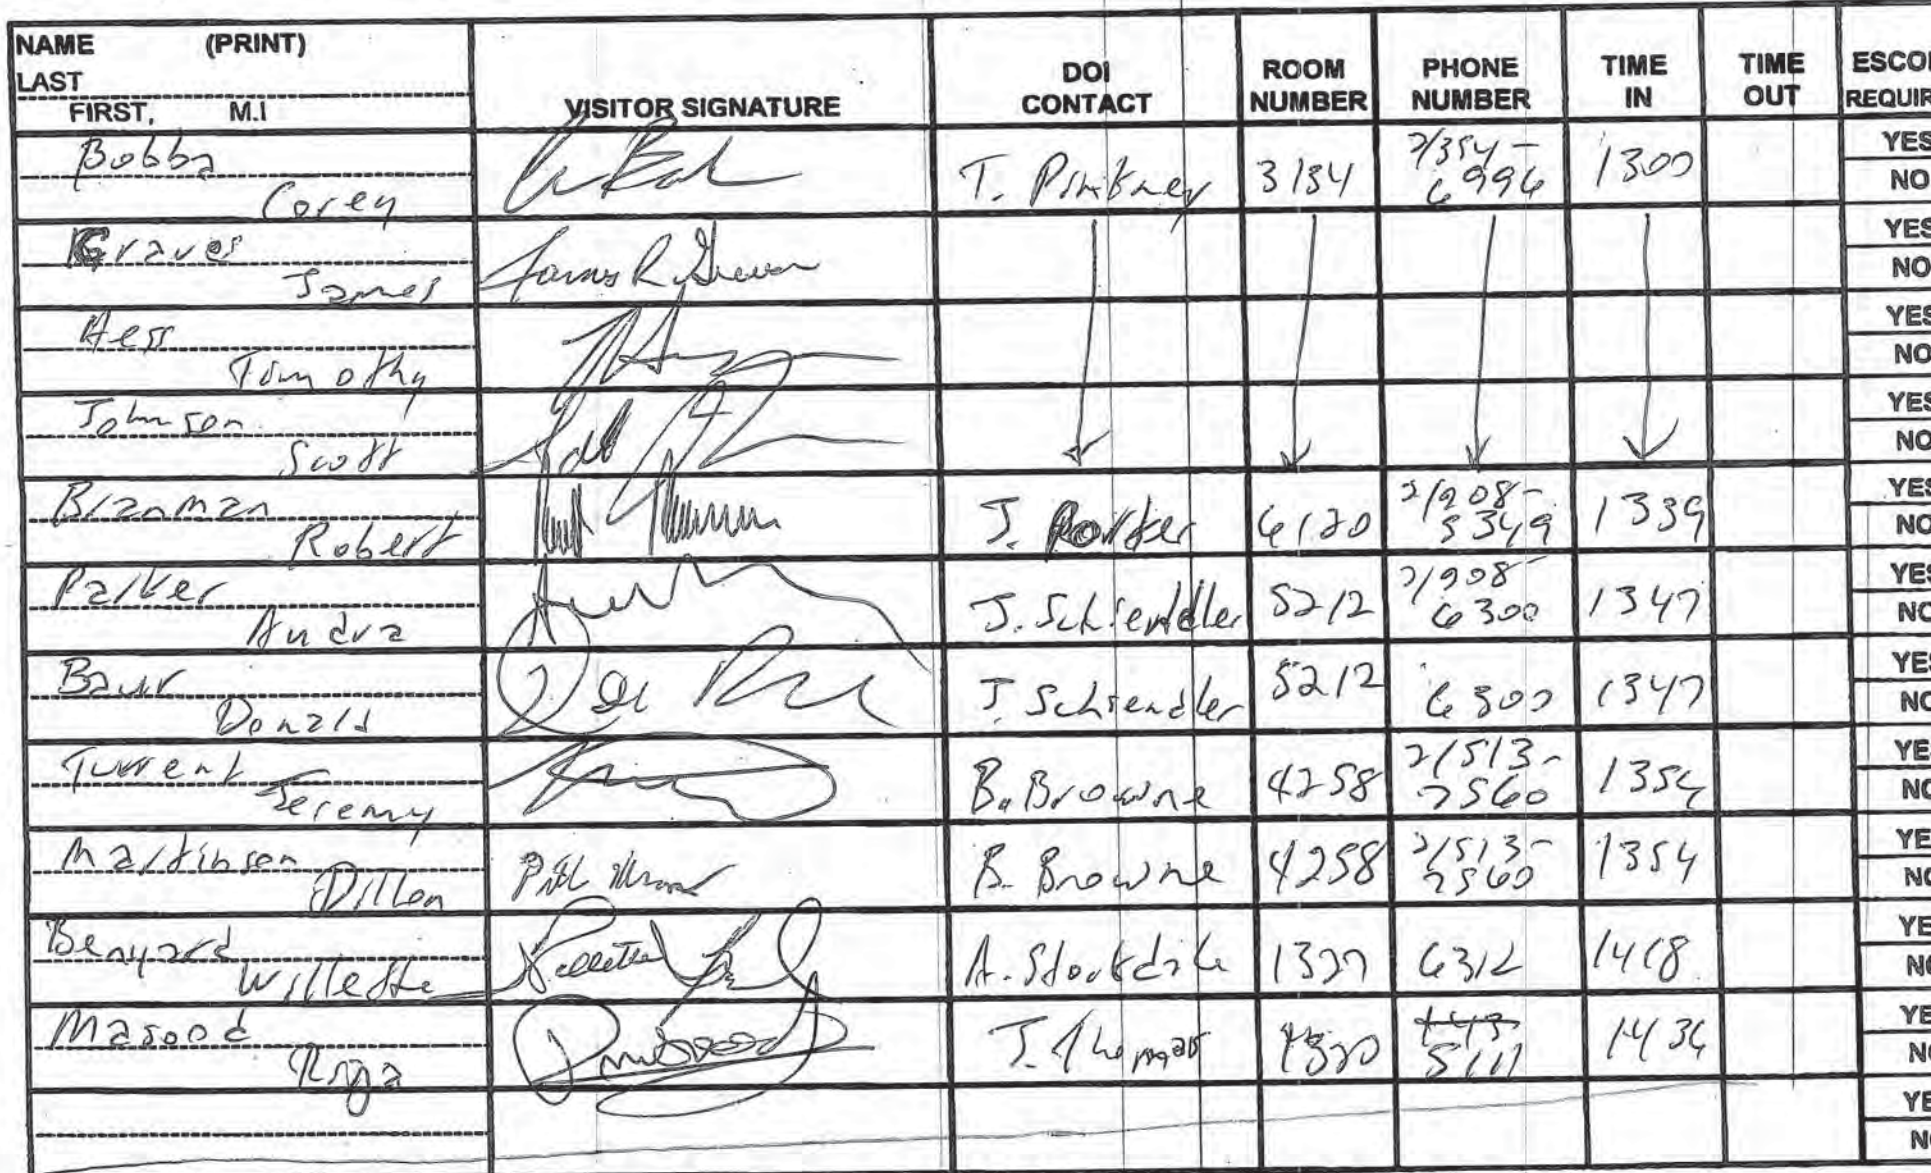 NAME (PRINT)
LAST
FIRST, M.I
VISITOR SIGNATURE
DOI CONTACT
ROOM NUMBER
PHONE NUMBER
TIME IN
TIME OUT
Bobby Corey T. Pinkney 3134 2/354-6994 1300 YES NO
Graves James YES NO
Hess Timothy YES NO
Johnson Scott YES NO
Branman Robert J. Porter 6120 2/208-5349 1339 YES NO
Parker Andra J. Schiendler 5212 2/908-6300 1347 YES NO
Baur Donald J. Schiendler 5212 6300 1347 YES NO
Turrent Jeremy B. Browne 4258 2/513-7560 1354 YE NO
Martinson Dillon B. Browne 4258 2/513-7560 1354 YE NO
Benyard Willette A. Stockdale 6312 1418 YE NO
Masood J. Thomas 5111 1436 YE NO
YE NO